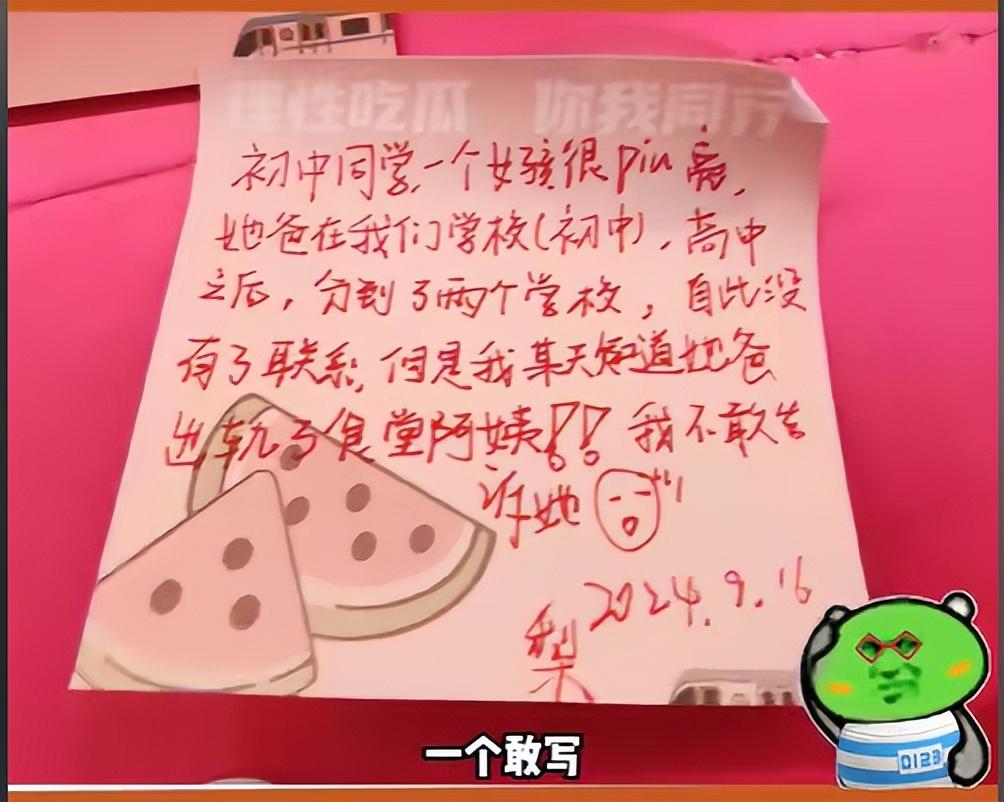 理性吃瓜 你我同行
初中同学,一个女孩很piu亮,
她爸在我们学校(初中),高中
之后,分到了两个学校,自此没
有了联系,但是我某天知道她爸
出轨了食堂阿姨!!我不敢告
诉她
2024.9.16
梨
一个敢写
0123